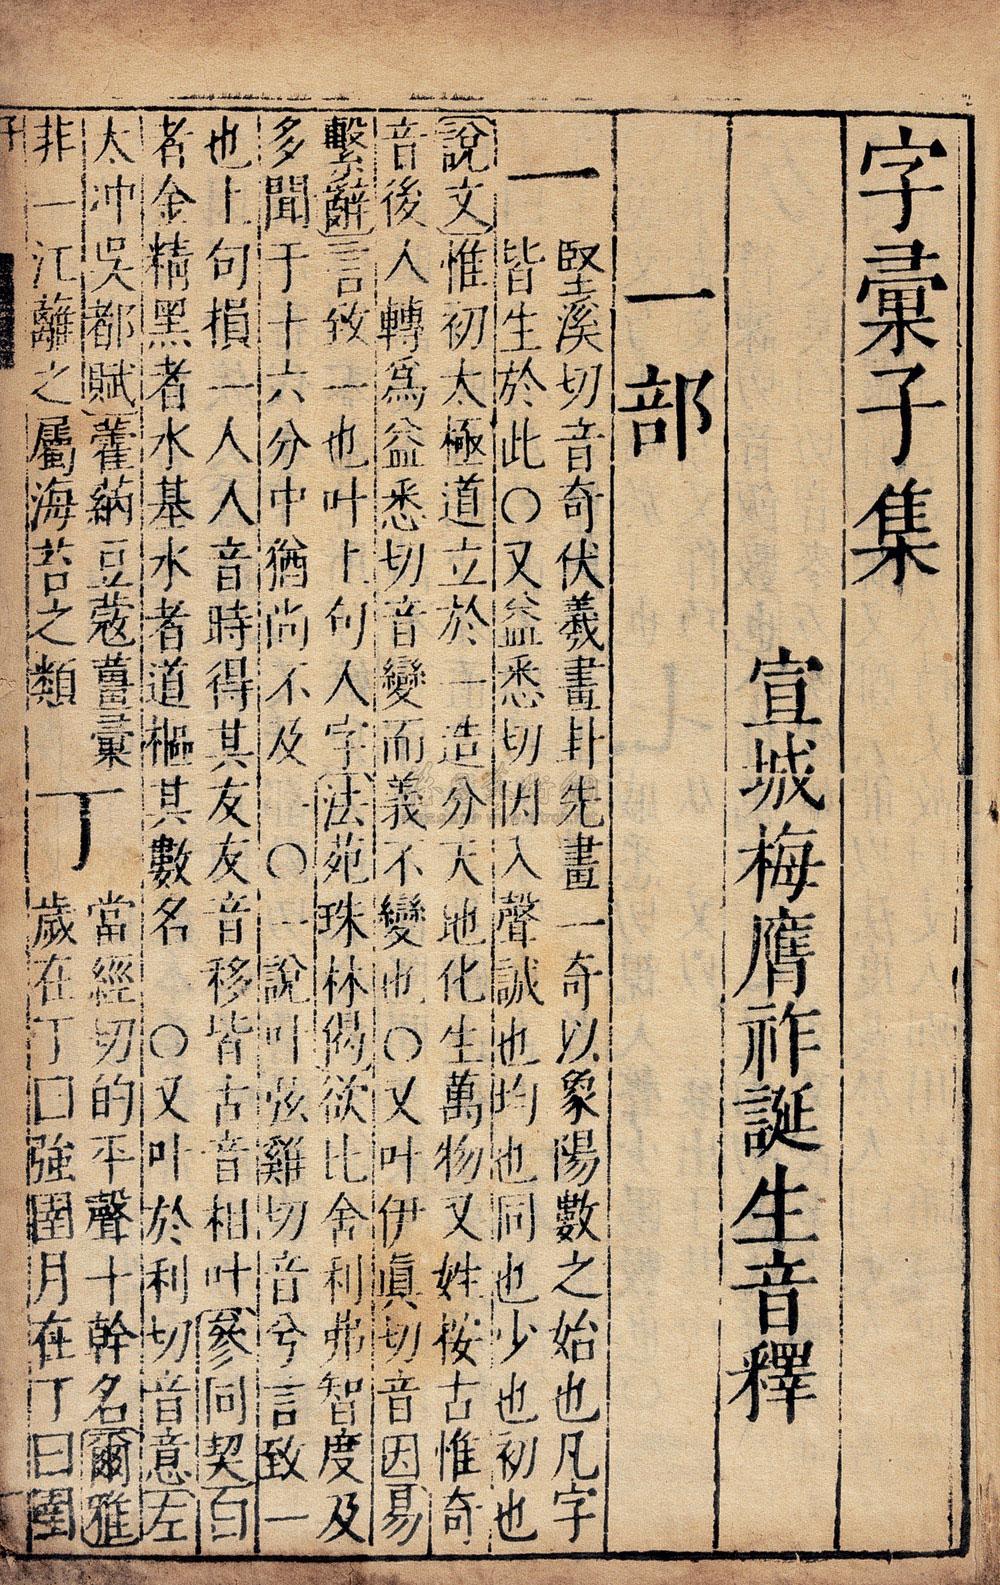 字彙子集
宣城梅膺祚誕生音釋
一部
一
堅溪切音奇伏羲畫卦先畫一奇以象陽數之始也凡字
皆生於此○又益悉切因入聲誠也均也同也少也初也
說文惟初太極道立於一造分天地化生萬物又姓按古惟奇
音後人轉為益悉切音變而義不變也○又叶伊真切音因易
繫辭言致一也叶上句人字法苑珠林偈欲比舍利弗智度及
多聞于十六分中猶尚不及一○一說叶弦雞切音兮言致一
也上句損一人人音時得其友友音移皆古音相叶參同契白
者金精黑者水基水者道樞其數名一○又叶於利切音意左
太冲吳都賦藿蒳豆蔻薑彙
非一江蘺之屬海苔之類
丁
當經切的平聲十幹名爾雅
歲在丁曰強圉月在丁曰圉